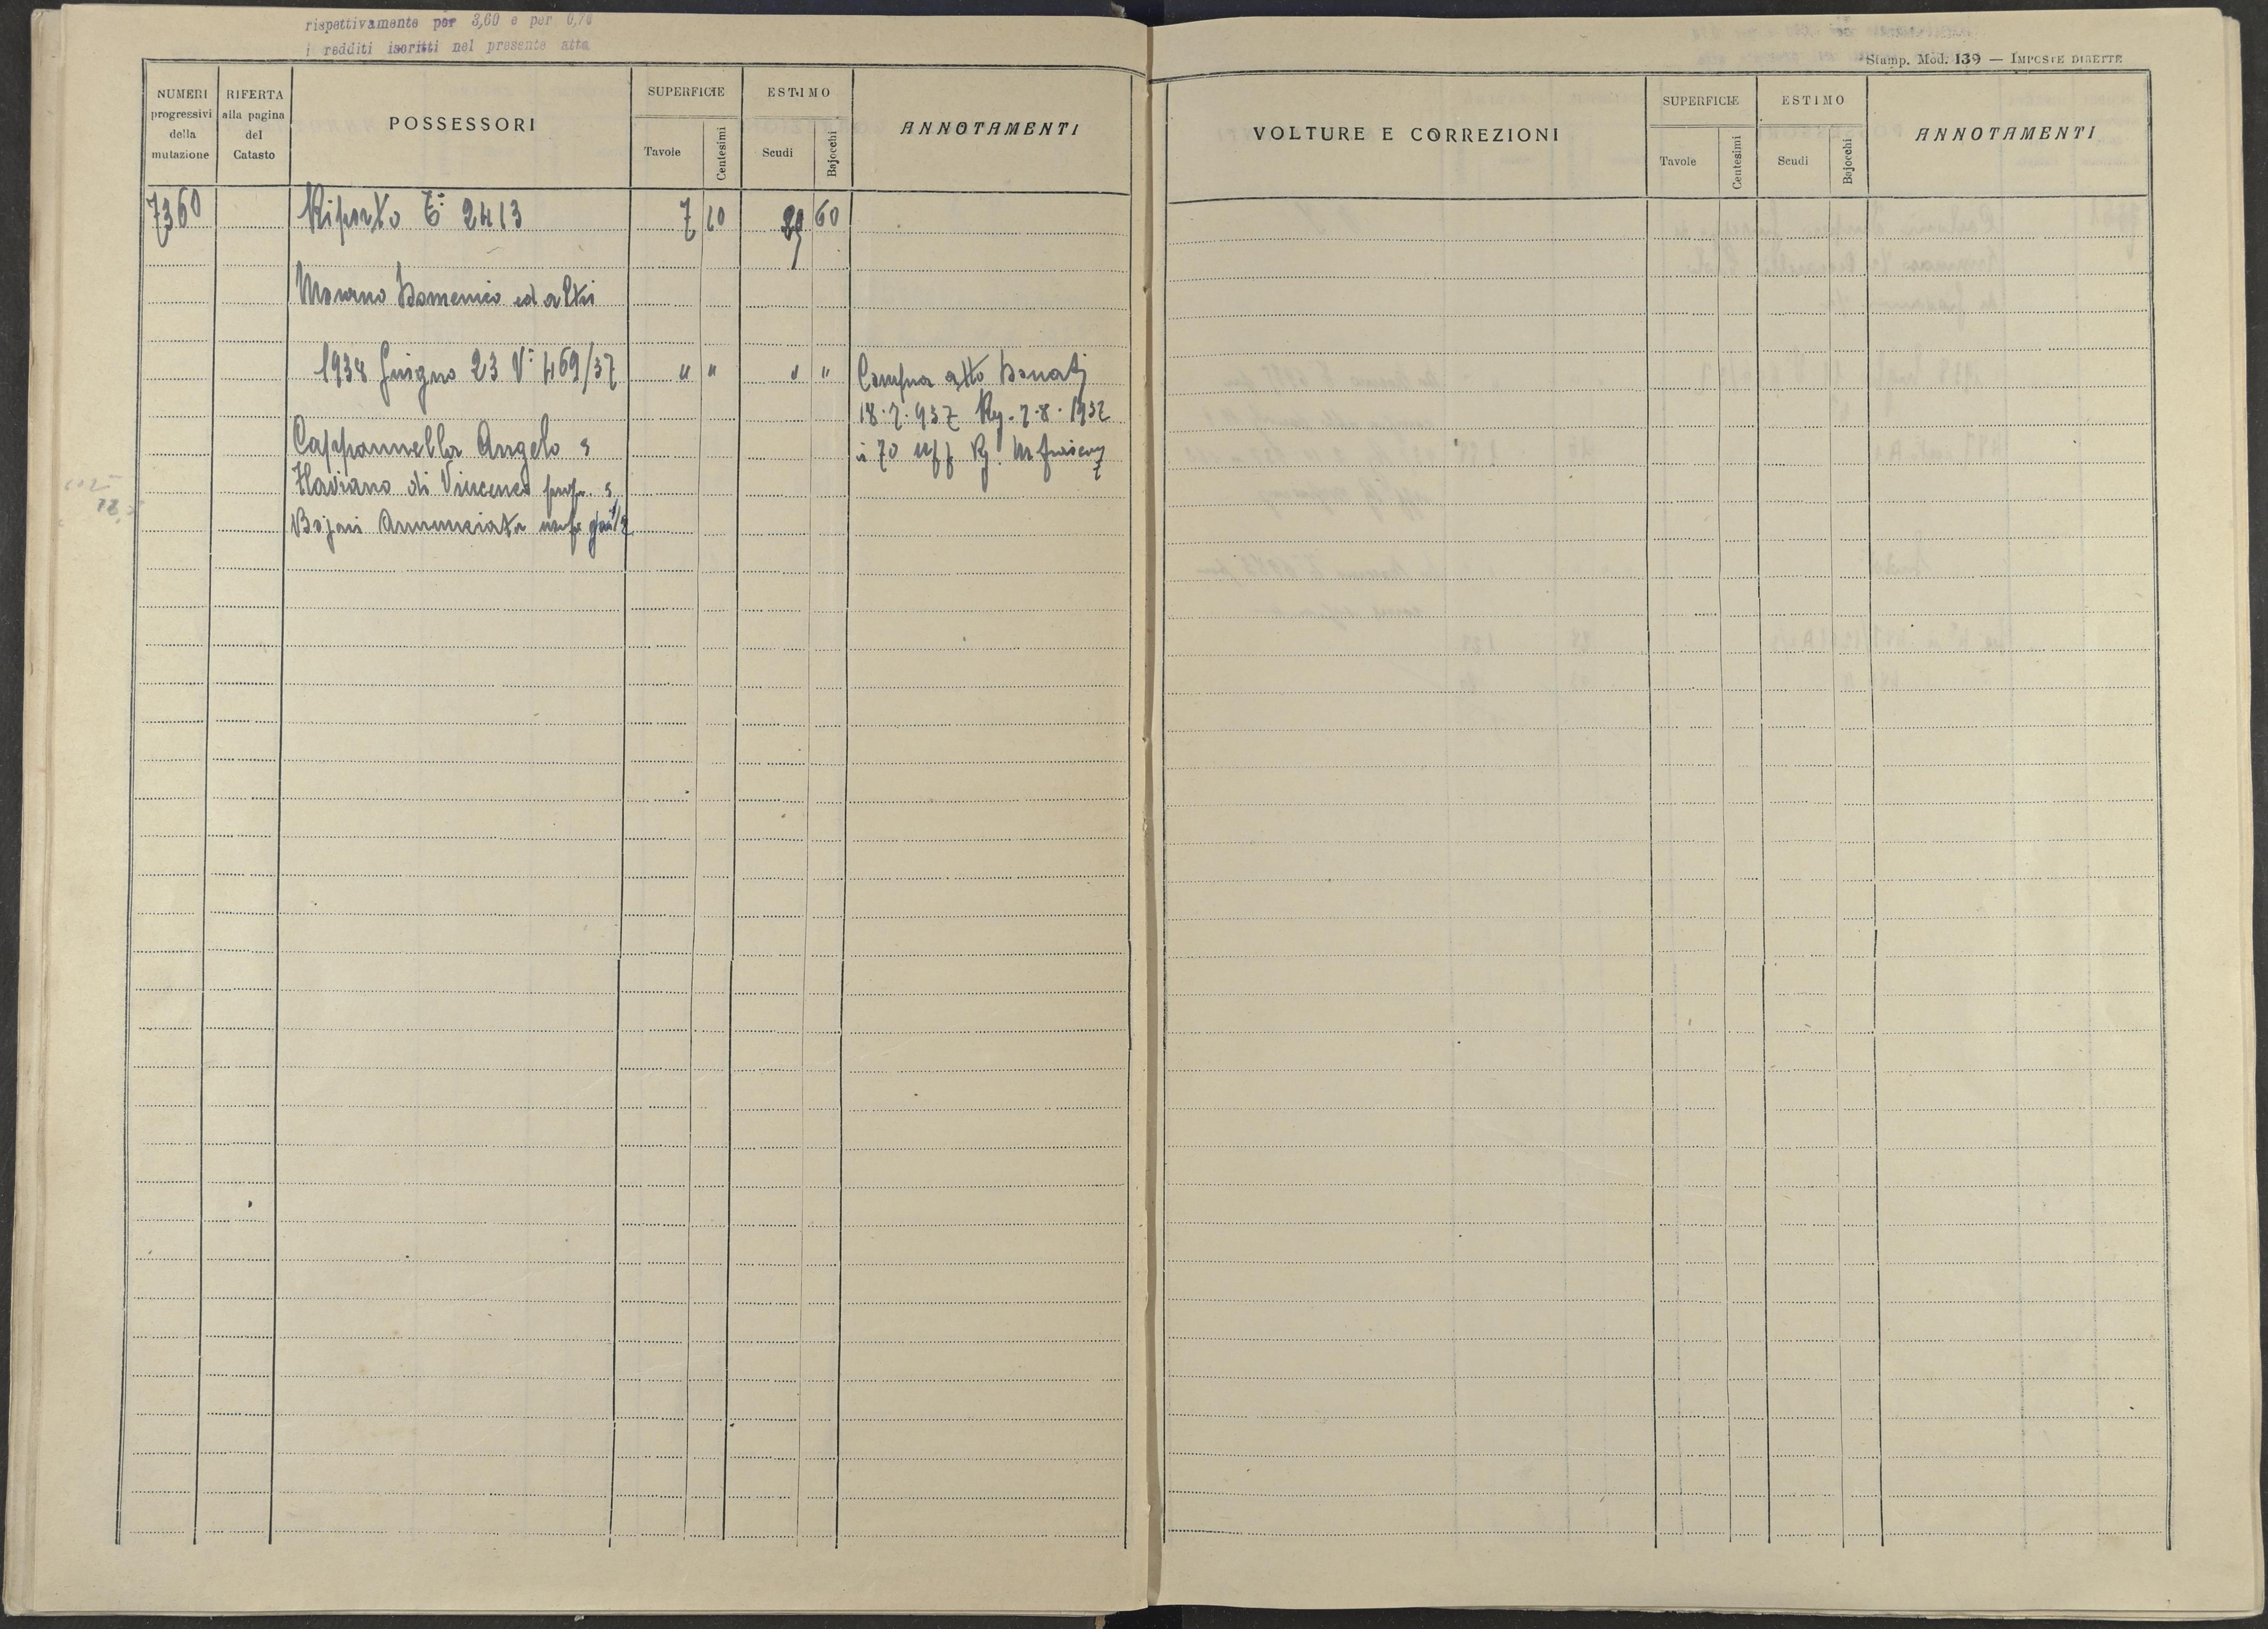 rispettivamente per 3,60 e per 0,70
i redditi iscritti nel presente atto
Stamp. Mod. 139 — IMPOSTE DIRETTE
NUMERI progressivi della mutazione
RIFERTA alla pagina del Catasto
POSSESSORI
SUPERFICIE
Tavole
Centesimi
ESTIMO
Scudi
Bajocchi
ANNOTAMENTI
VOLTURE E CORREZIONI
SUPERFICIE
Tavole
Centesimi
ESTIMO
Scudi
Bajocchi
ANNOTAMENTI
7360 Riporto 2413 7 10 60
Morano Domenico ed altri
1938 Giugno 23 V: 469/37 " " " " Compra atto Donati
18.7.937 Reg. 7.8.1937
Cappannella Angelo e
70 uff Rg.
Flaviano di Vincenzo propr. e
Bojani Annunciata usufr